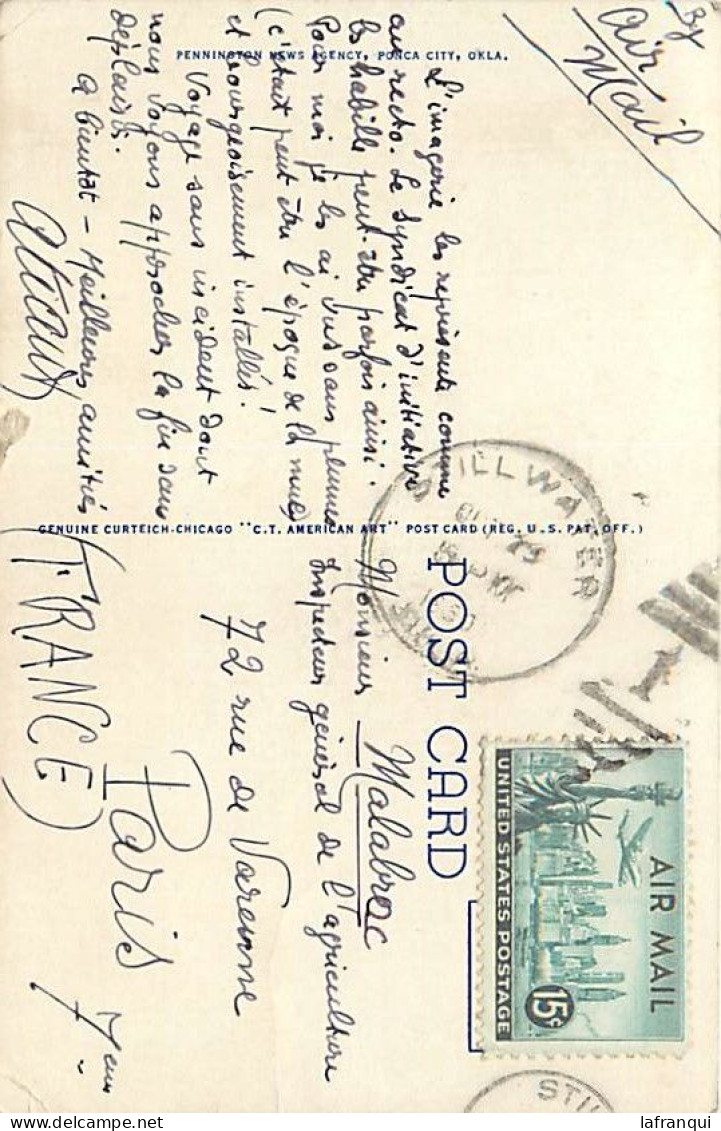 By
Air
Mail
PENNINGTON NEWS AGENCY, PONCA CITY, OKLA.
L'imagerie les représente comme
au recto. Le Syndicat d'initiative
les habille peut-être parfois ainsi.
Pour moi je les ai vus sans plumes
(c'était peut être l'époque de la mue)
et bourgeoisement installés!
Voyage sans incident dont
nous voyons approcher la fin sans
déplaisir.
A bientôt - Meilleures amitiés
GENUINE CURTEICH-CHICAGO "C.T. AMERICAN ART" POST CARD (REG. U.S. PAT. OFF.)
POST CARD
Monsieur Malabrac
Inspecteur général de l'agriculture
72 rue de Varenne
Paris 7ème
(FRANCE)
STILLWATER
AIR MAIL
UNITED STATES POSTAGE
15¢
STIL
lafranqui